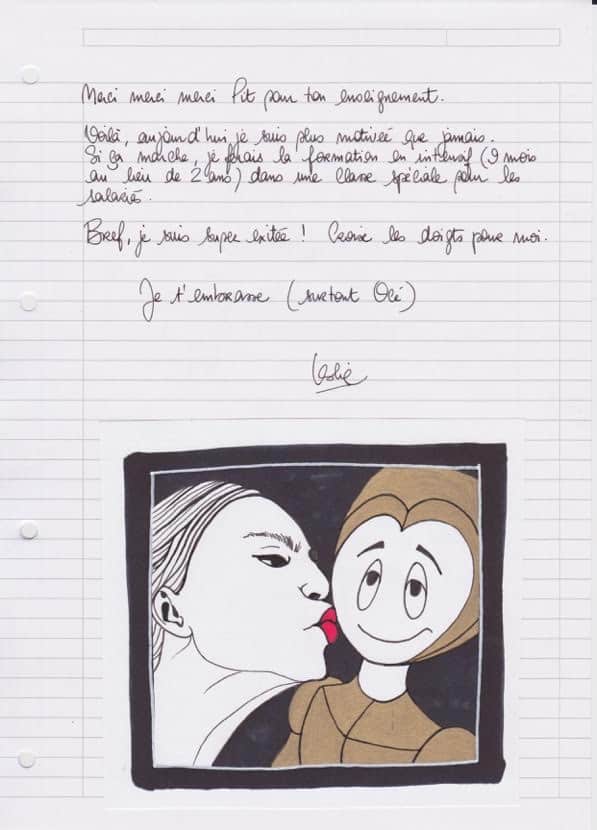 Merci merci merci Pit pour ton enseignement.
Voilà, aujourd'hui je suis plus motivée que jamais.
Si ça marche, je ferais la formation en intensif (9 mois
au lieu de 2 ans) dans une classe spéciale pour les
salariés.
Bref, je suis super exitée ! Croise les doigts pour moi.
Je t'embrasse (surtout Olé)
Leslie